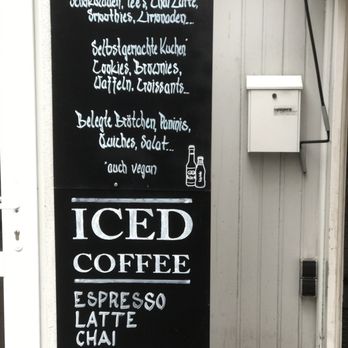 Schokoladen, Tee's, Chai Latte,
Smoothies, Limonaden...
Selbstgemachte Kuchen*
Cookies, Brownies,
Waffeln, Croissants...
Belegte Brötchen, Paninis,
Quiches, Salat...
*auch vegan
ICED
COFFEE
ESPRESSO
LATTE
CHAI